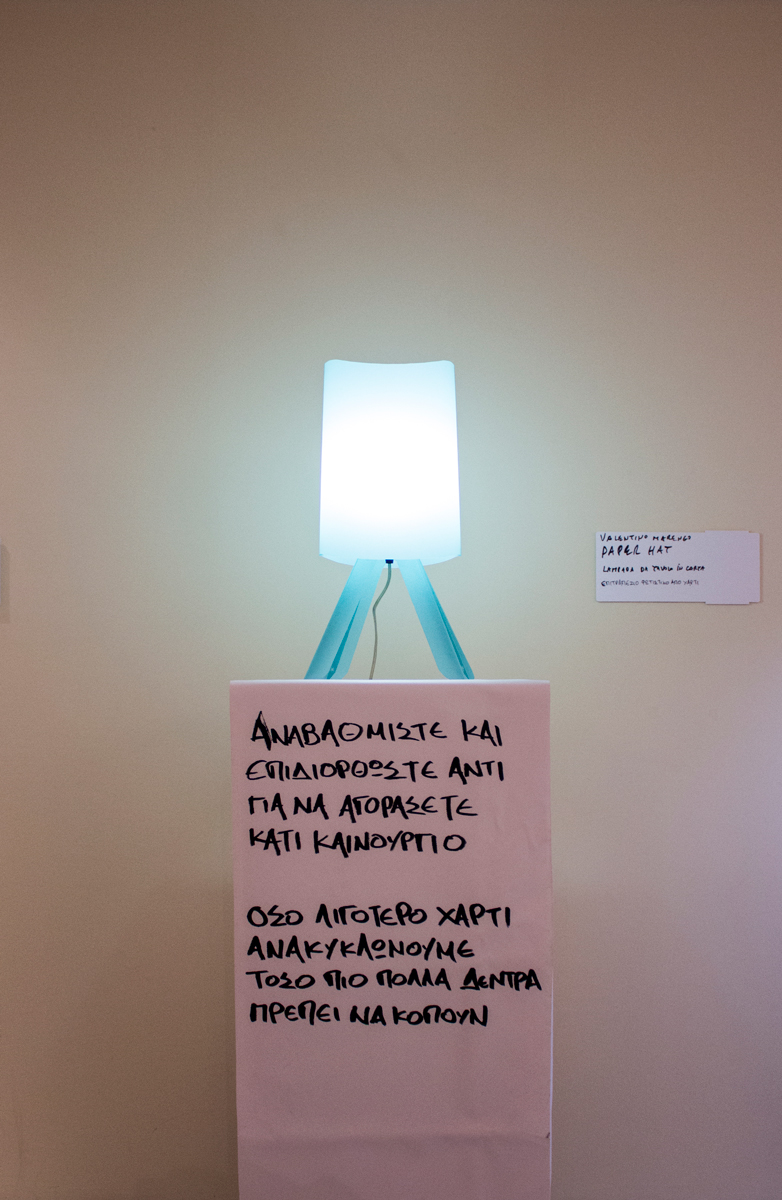 ΑΝΑΒΑΘΜΙΣΤΕ ΚΑΙ
ΕΠΙΔΙΟΡΘΩΣΤΕ ΑΝΤΙ
ΓΙΑ ΝΑ ΑΓΟΡΑΣΕΤΕ
ΚΑΤΙ ΚΑΙΝΟΥΡΓΙΟ
ΟΣΟ ΛΙΓΟΤΕΡΟ ΧΑΡΤΙ
ΑΝΑΚΥΚΛΩΝΟΥΜΕ
ΤΟΣΟ ΠΙΟ ΠΟΛΛΑ ΔΕΝΤΡΑ
ΠΡΕΠΕΙ ΝΑ ΚΟΠΟΥΝ
VALENTINO MARENGO
PAPER HAT
LAMPADA DA TAVOLO IN CARTA
ΑΠΟ ΧΑΡΤΙ